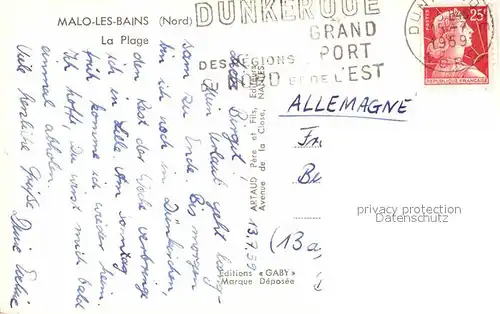 MALO-LES-BAINS (Nord)
La Plage
DUNKERQUE
GRAND
PORT
DES RÉGIONS
NORD ET DE L'EST
DUN
1959
25F
REPUBLIQUE FRANÇAISE
ALLEMAGNE
13.7.59
Liebe Birgit!
Mein Urlaub geht lang-
sam zu Ende. Bis morgen
bin ich noch in Dünkirchen,
den Rest der Woche verbringe
ich in Lille. Am Sonntag
früh komme ich wieder heim.
Ich hoffe, Du wirst mich bald
einmal abholen.
Viele herzliche Grüße, Deine
ARTAUD Père et Fils, Editeurs
Avenue de la Close, NANTES
Editions « GABY »
Marque Déposée
Fr
(13a
privacy protection
Datenschutz